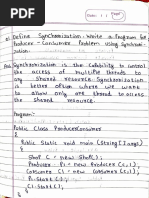 Date: / / Page:
Q1. Define Synchronization. Write a Program for
Producer - Consumer Problem using Synchroni-
zation.
Ans. Synchronization is the Capability to Control
the access of multiple threads to
any Shared resource. Synchronization
is better option where we want
allow only one thread to access
the Shared resource.
Program:-
Public Class ProducerConsumer
{
Public Static void main (String [] args)
{
Shop c = new Shop();
Producer P1 = new Producer (c, 1);
Consumer C1 = new Consumer (c, 1);
P1. Start ();
C1. Start ();
}